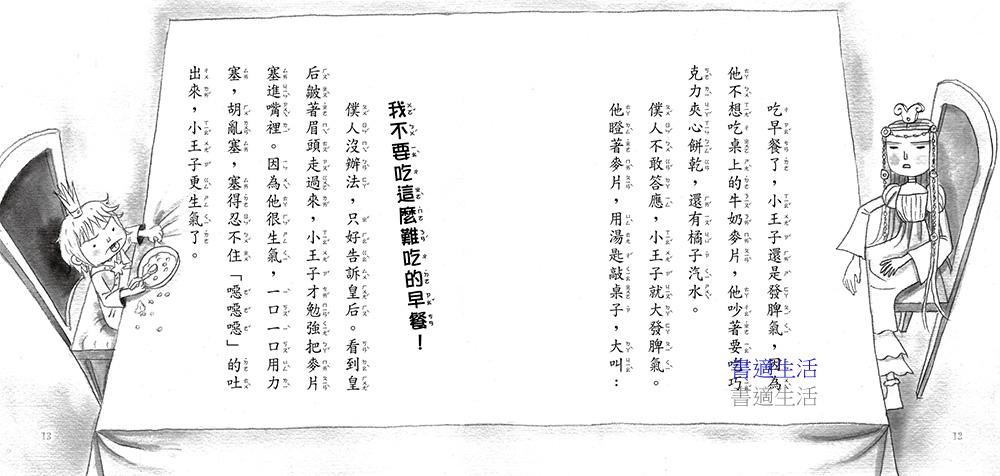 吃早餐了，小王子還是發脾氣，因為
他不想吃桌上的牛奶麥片，他吵著要吃巧
克力夾心餅乾，還有橘子汽水。
僕人不敢答應，小王子就大發脾氣。
他瞪著麥片，用湯匙敲桌子，大叫：
我不要吃這麼難吃的早餐！
僕人沒辦法，只好告訴皇后。看到皇
后皺著眉頭走過來，小王子才勉強把麥片
塞進嘴裡。因為他很生氣，一口一口用力
塞，胡亂塞，塞得忍不住「噁噁噁」的吐
出來，小王子更生氣了。
書適生活
書適生活
12
13